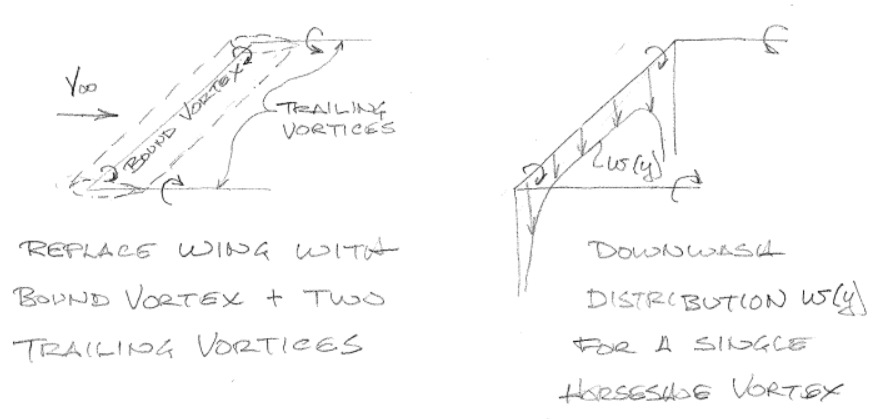 V∞
BOUND VORTEX
TRAILING
VORTICES
w(y)
REPLACE WING WITH
BOUND VORTEX + TWO
TRAILING VORTICES
DOWNWASH
DISTRIBUTION w(y)
FOR A SINGLE
HORSESHOE VORTEX